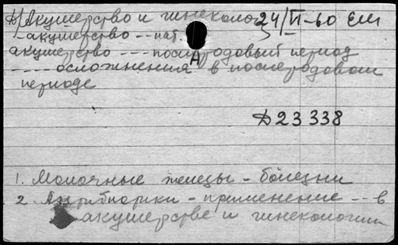 Акушерство и гинеколог 24/VI-60 Еш
- акушерство --- пат.
акушерство --- послеродовый период
А
--- осложнения в послеродовом
периоде
Д23338
1. Молочные железы - болезни
2. Антибиотики - применение -- в
акушерстве и гинекологии